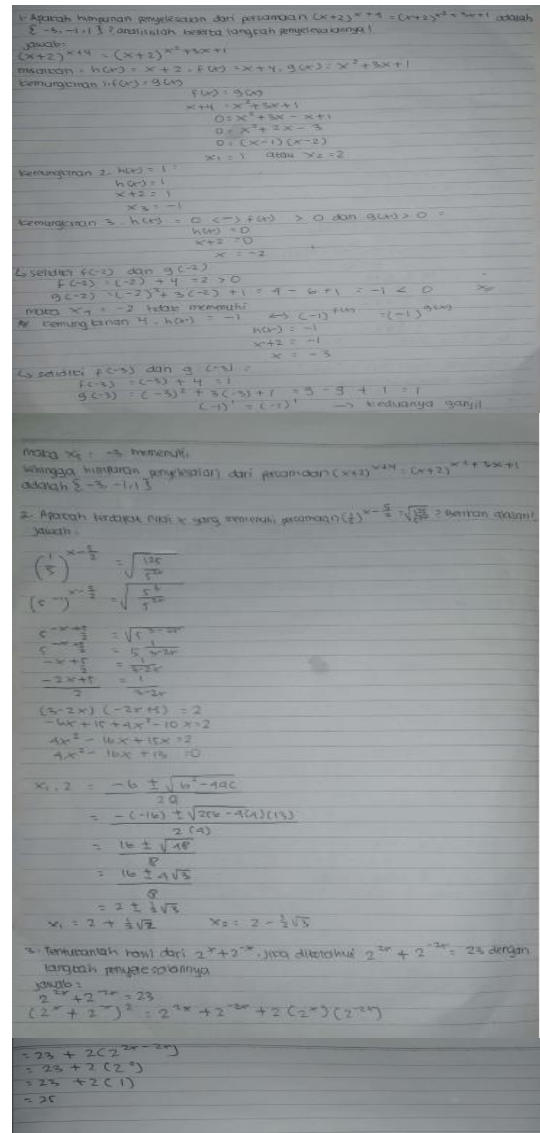 1. Apakah himpunan penyelesaian dari persamaan (x+2)^x+4 = (x+2)^x²+3x+1 adalah
{-3, -1, 1}? analisislah beserta langkah penyelesaiannya!
Jawab:
(x+2)^x+4 = (x+2)^x²+3x+1
misalkan : h(x) = x+2, f(x) = x+4, g(x) = x²+3x+1
kemungkinan 1. f(x) = g(x)
f(x) = g(x)
x+4 = x²+3x+1
0 = x²+3x-x+1
0 = x²+2x-3
0 = (x-1)(x-2)
x₁ = 1 atau x₂ = 2
kemungkinan 2. h(x) = 1 =
h(x) = 1
x+2 = 1
x₃ = -1
kemungkinan 3. h(x) = 0 <-> f(x) > 0 dan g(x) > 0 =
h(x) = 0
x+2 = 0
x = -2
↳ selidiki f(-2) dan g(-2)
f(-2) = (-2) + 4 = 2 > 0
g(-2) = (-2)² + 3(-2) + 1 = 4 - 6 + 1 = -1 < 0
maka x₄ = -2 tidak memenuhi
kemungkinan 4. h(x) = -1 <-> (-1)^f(x) = (-1)^g(x)
h(x) = -1
x+2 = -1
x = -3
↳ selidiki f(-3) dan g(-3) =
f(-3) = (-3) + 4 = 1
g(-3) = (-3)² + 3(-3) + 1 = 9 - 9 + 1 = 1
(-1)¹ = (-1)¹ -> keduanya ganjil
maka x₅ = -3 memenuhi
sehingga himpunan penyelesaian dari persamaan (x+2)^x+4 = (x+2)^x²+3x+1
adalah {-3, -1, 1}
2. Apakah terdapat nilai x yang memenuhi persamaan ? Berikan alasan!
Jawab:
(1/5)^x-5/2 = √(125/5^2x)
(5^-1)^x-5/2 = √(5³/5^2x)
5^-x+5/2 = √5^3-2x
5^-x+5/2 = 5^1/3-2x
-x+5/2 = 1/3-2x
-2x+5/2 = 1/3-2x
(3-2x)(-2x+5) = 2
-6x+15+4x²-10x=2
4x²-16x+15x=2
4x²-16x+13=0
x₁,2 = -b ± √b²-4ac / 2a
= -(-16) ± √256-4(4)(13) / 2(4)
= 16 ± √48 / 8
= 16 ± 4√3 / 8
= 2 ± ½√3
x₁ = 2 + ½√2 x₂ = 2 - ½√3
3. Tentukanlah hasil dari 2^x+2^-x, jika diketahui 2^2x + 2^-2x = 23 dengan
langkah penyelesaiannya
Jawab:
2^2x + 2^-2x = 23
(2^x + 2^-x)² = 2^2x + 2^-2x + 2(2^x)(2^-2x)
= 23 + 2(2^2x-2x)
= 23 + 2(2⁰)
= 23 + 2(1)
= 25